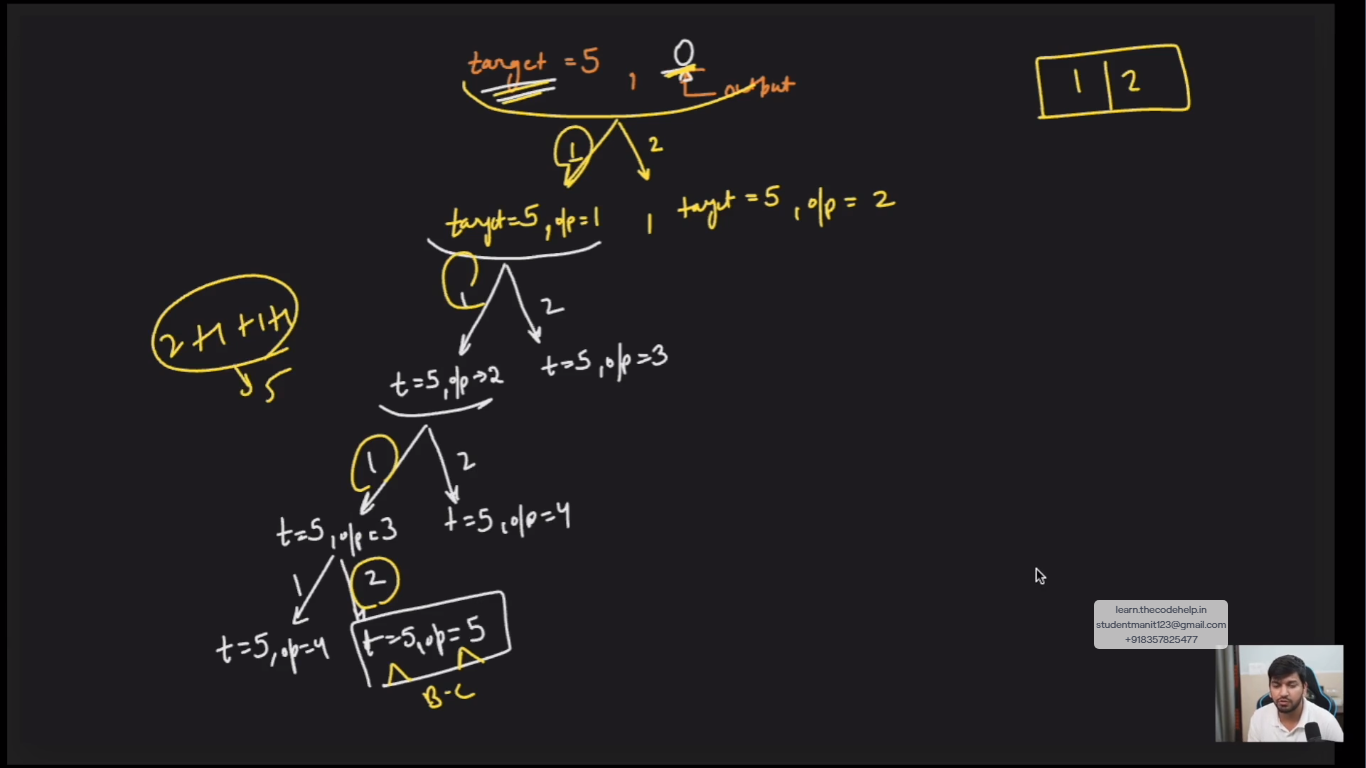 target = 5 , 0
output
1 | 2
1 2
target=5, o/p=1 , target=5, o/p= 2
1 2
2+1+1+1
5
t=5, o/p→2 t=5, o/p=3
1 2
t=5, o/p=3 t=5, o/p=4
1 2
t=5, o/p=4 t=5, o/p=5
B-C
learn.thecodehelp.in
studentmanit123@gmail.com
+918357825477